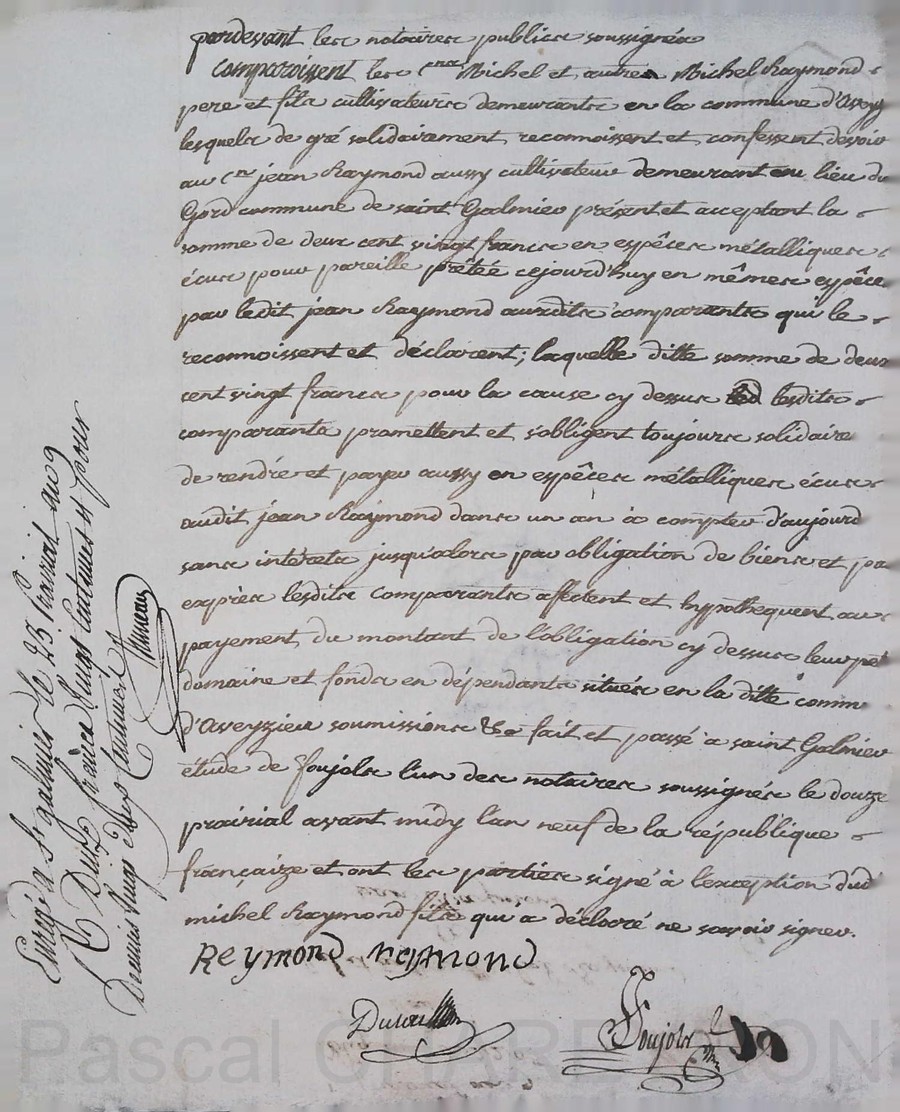 pardevant les notaires publics soussignés
comparoissent les cens Michel et autre Michel Raymond
pere et fils cultivateurs demeurants en la commune d'Aveyz
lesquels de gré solidairement reconnoissent et confessent devoir
au cen jean Raymond aussy cultivateur demeurant au lieu du
Gord commune de saint Galmier présent et acceptant la
somme de deux cent vingt francs en espêces métalliques
écus pour pareille prêtée cejourd'huy en mêmes espêces
par ledit jean Raymond auxdits comparants qui le
reconnoissent et déclarent; laquelle ditte somme de deux
cent vingt francs pour la cause cy dessus lesdits
comparants promettent et s'obligent toujours solidaire
de rendre et payer aussy en espêces métalliques écus
audit jean Raymond dans un an à compter d'aujourd
sans intérêts jusqu'alors par obligation de biens et pa
exprès lesdits comparants affectent et hypothequent au
payement du montant de l'obligation cy dessus leur pet
domaine et fonds en dépendants situés en la ditte comm
d'Aveyzieu soumissions &a fait et passé a saint Galmier
étude de Foujols l'un des notaires soussignés le douze
prairial avant midy l'an neuf de la république
françaize et ont les parties signé à l'exception dud
michel Raymond fils qui a déclaré ne savoir signer.
Reymond Raymond
Foujols
Enregé a St galmier le 23 prairial an 9
R Dix francs